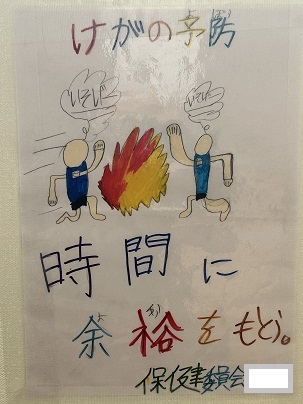 けがの予防
いそげ いそげ
時間に
余裕をもとう。
保健委員会